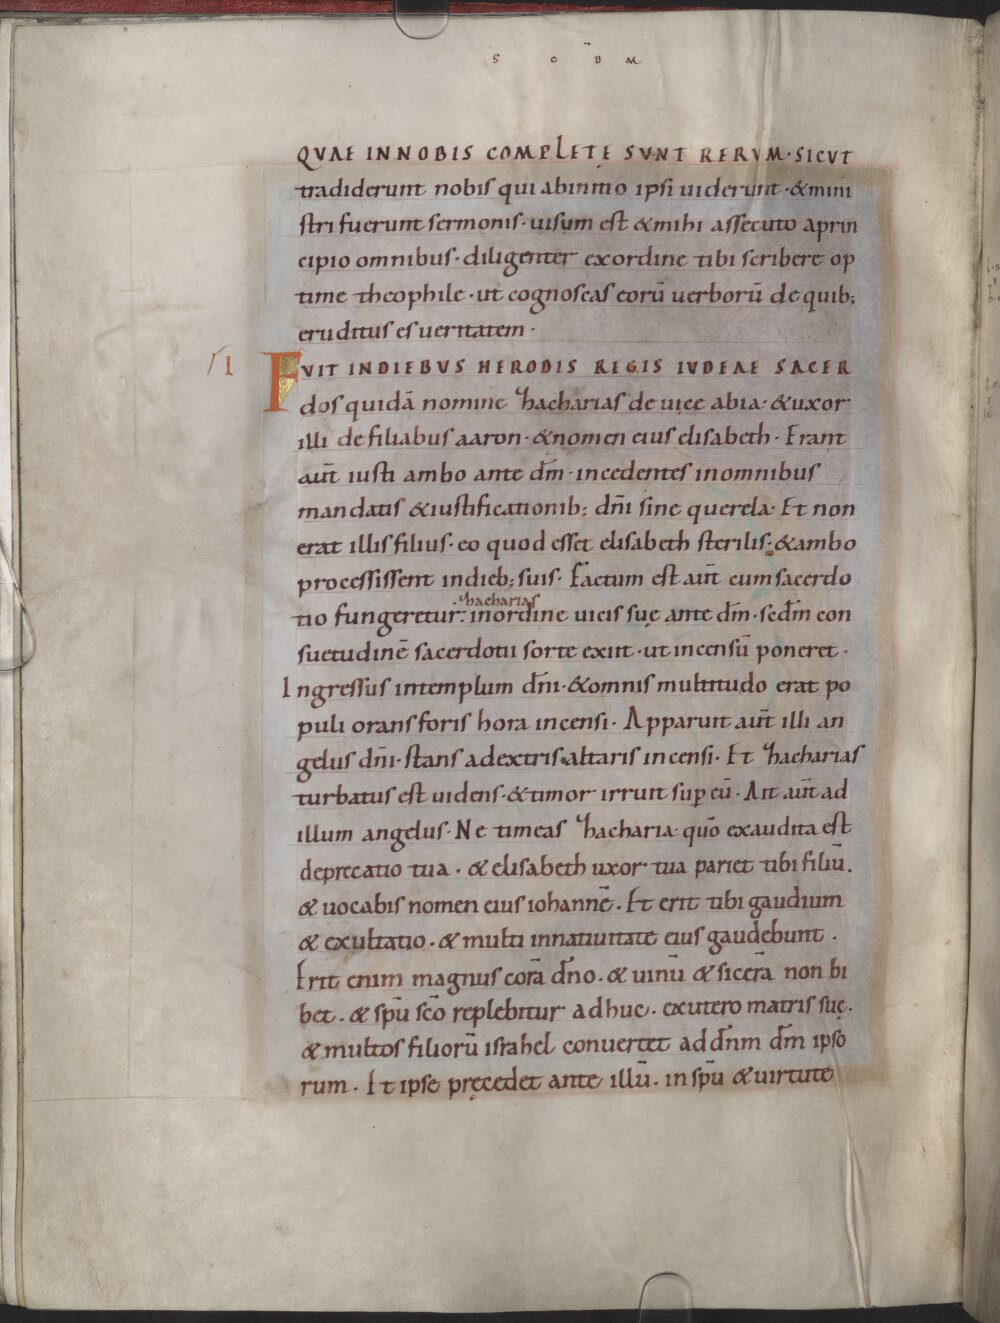 S C D̄ M
QVAE INNOBIS COMPLETĘ SVNT RERVM · SICVT
tradiderunt nobis qui abinitio ipsi uiderunt · &mini
stri fuerunt sermonis · uisum est &mihi assecuto aprin
cipio omnibus · diligenter exordine tibi scribere op
time theophile · ut cognoscas eorū uerborū de quib;
eruditus es ueritatem ·
I FVIT INDIEBVS HERODIS REGIS IVDEAE SACER
dos quidā nomine zhacharias de uice abia · &uxor
illi de filiabus aaron · &nomen eius elisabeth · Erant
aut̄ iusti ambo ante dm̄ · incedentes inomnibus
mandatis &iustificationib; dn̄i sine querela · Et non
erat illis filius · eo quod esset elisabeth sterilis · &ambo
processissent indieb; suis · Factum est aut̄ cum sacerdo
zhacharias
tio fungeretur · inordine uicis suę ante dm̄ · scdm̄ con
suetudinē sacerdotii sorte exiit · ut incensū poneret ·
Ingressus intemplum dn̄i · &omnis multitudo erat po
puli orans foris hora incensi · Apparuit aut̄ illi an
gelus dn̄i · stans adextris altaris incensi · Et zhacharias
turbatus est uidens · &timor irruit sup eū · Ait aut̄ ad
illum angelus · Ne timeas zhacharia quō exaudita est
deprecatio tua · & elisabeth uxor tua pariet tibi filiū .
& uocabis nomen eius iohannē · Et erit tibi gaudium
& exultatio · & multi innatiuitate eius gaudebunt ·
Erit enim magnus corā dn̄o · & uinū & sicerā non bi
bet · & spū sc̄o replebitur adhuc · exutero matris suę ·
& multos filiorū israhel conuertet ad dn̄m dm̄ ipso
rum · Et ipse pręcedet ante illū · in spū &uirtute